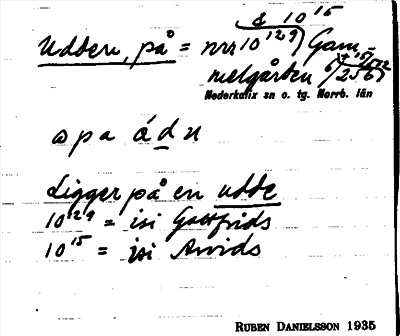 & 10¹⁵
Udden, på = nrr 10¹²⁹) Gam-
melgården 6/256
Nederkalix sn o. tg. Norrb. län
ɷ p a á d n
Ligger på en udde
10¹²⁹ = isi Gottfrids
10¹⁵ = isi Arvids
RUBEN DANIELSSON 1935